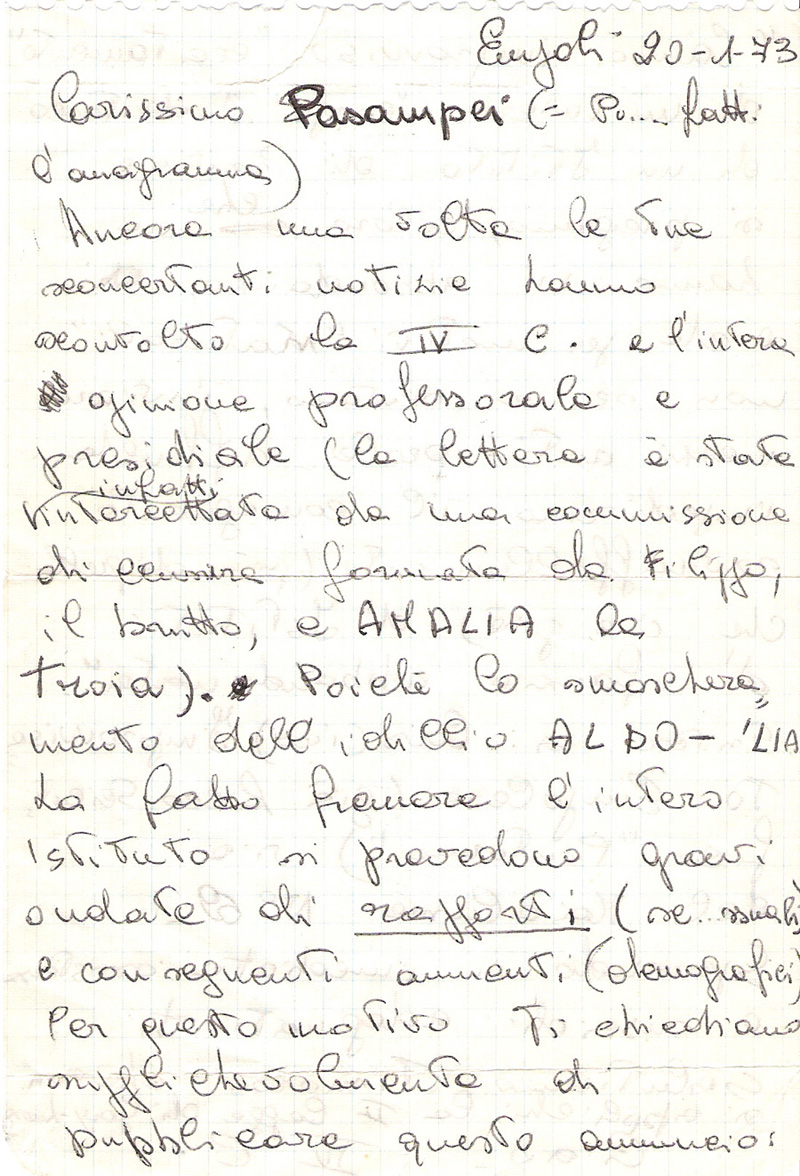 Empoli 20-1-73
Carissimo Pasampei (= Pu.... fatti
l'anagramma)
Ancora una volta le tue
sconcertanti notizie hanno
scontolto la IV C. e l'intera
opinione professorale e
presidiale (la lettera è stata
infatti
intercettata da una commissione
di censura formata da Filippo,
il brutto, e AMALIA la
troia). Poichè lo smaschera,,
mento dell'idillio ALDO-'LIA
ha fatto fremere l'intero
Istituto si prevedono gravi
ondate di rapporti (se..ssuali)
e conseguenti aumenti (demografici)
Per questo motivo Ti chiediamo
supplichevolmente di
pubblicare questo annuncio: